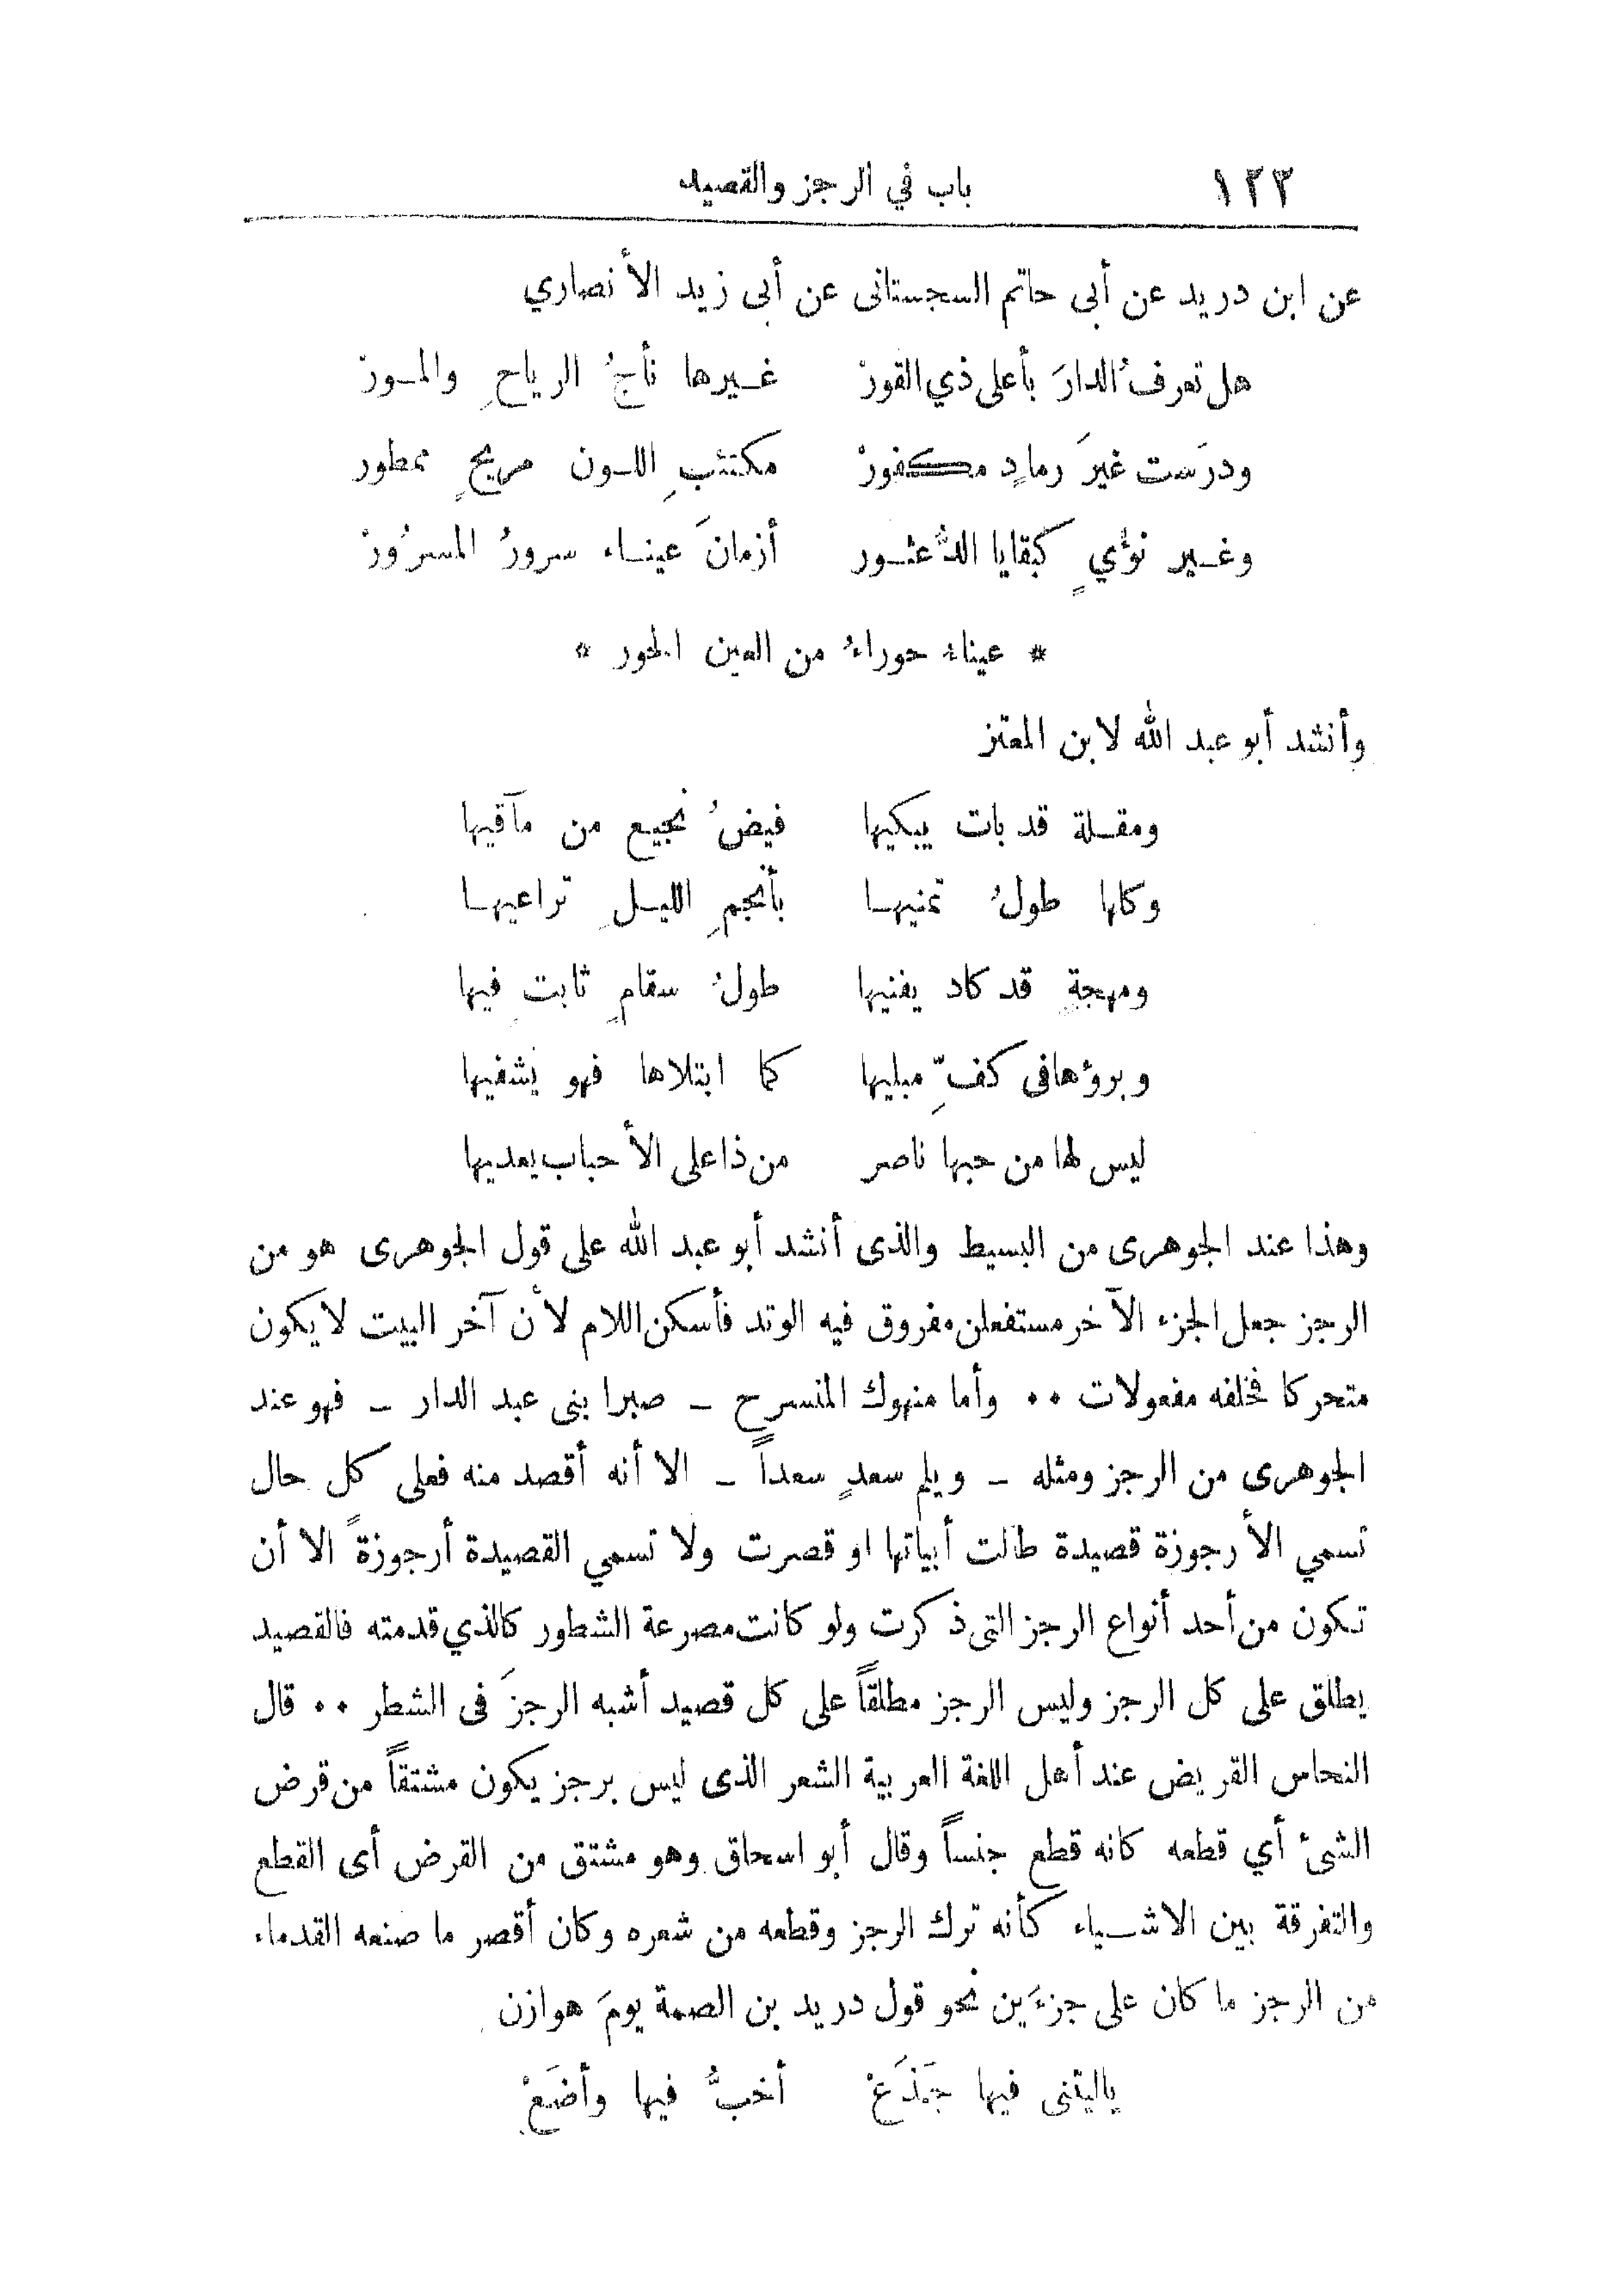 ١٢٣ باب في الرجز والقصيد
عن ابن دريد عن أبى حاتم السجستانى عن أبى زيد الأنصاري
هل تعرفُ الدارَ بأعلى ذي القورْ غـيرها نأجُ الرياحِ والمـورْ
ودرَست غيرَ رمادٍ مكفورْ مكتئبِ اللـون مريحٍ ممطور
وغـير نوْيٍ كبقايا الدُّعثـور أزمانَ عينـاء سرورُ المسرُورْ
* عيناءُ حوراءُ من العين الحور *
وأنشد أبو عبد الله لابن المعتز
ومقـلة قد بات يبكيها فيضُ نجيع من مآقيها
وكلها طولُ تمنيهـا بأنجمِ الليـلِ تراعيهـا
ومهجةٍ قد كاد يفنيها طولُ سقامٍ ثابت فيها
وبروْها فى كفّ مبليها كما ابتلاها فهو يشفيها
ليس لها من حبها ناصر من ذا على الأحباب يعديها
وهذا عند الجوهرى من البسيط والذى أنشد أبو عبد الله على قول الجوهرى هو من
الرجز جعل الجزء الآخر مستفعلن مفروق فيه الوتد فأسكن اللام لأن آخر البيت لا يكون
متحركا فخلفه مفعولات ٠٠ وأما منهوك المنسرح ـ صبرا بنى عبد الدار ـ فهو عند
الجوهرى من الرجز ومثله ـ ويلم سعدٍ سعداً ـ الا أنه أقصد منه فعلى كل حال
تسمي الأرجوزة قصيدة طالت أبياتها او قصرت ولا تسمي القصيدة أرجوزةً الا أن
تكون من أحد أنواع الرجز التى ذكرت ولو كانت مصرعة الشطور كالذي قدمته فالقصيد
يطلق على كل الرجز وليس الرجز مطلقاً على كل قصيد أشبه الرجزَ فى الشطر ٠٠ قال
النحاس القريض عند أهل اللغة العربية الشعر الذى ليس برجز يكون مشتقاً من قرض
الشئ أي قطعه كانه قطع جنساً وقال أبو اسحاق وهو مشتق من القرض أى القطع
والتفرقة بين الاشـياء كأنه ترك الرجز وقطعه من شعره وكان أقصر ما صنعه القدماء
من الرجز ما كان على جزءَين نحو قول دريد بن الصمة يومَ هوازن
ياليتنى فيها جَذَعْ أخبُّ فيها وأضَعْ